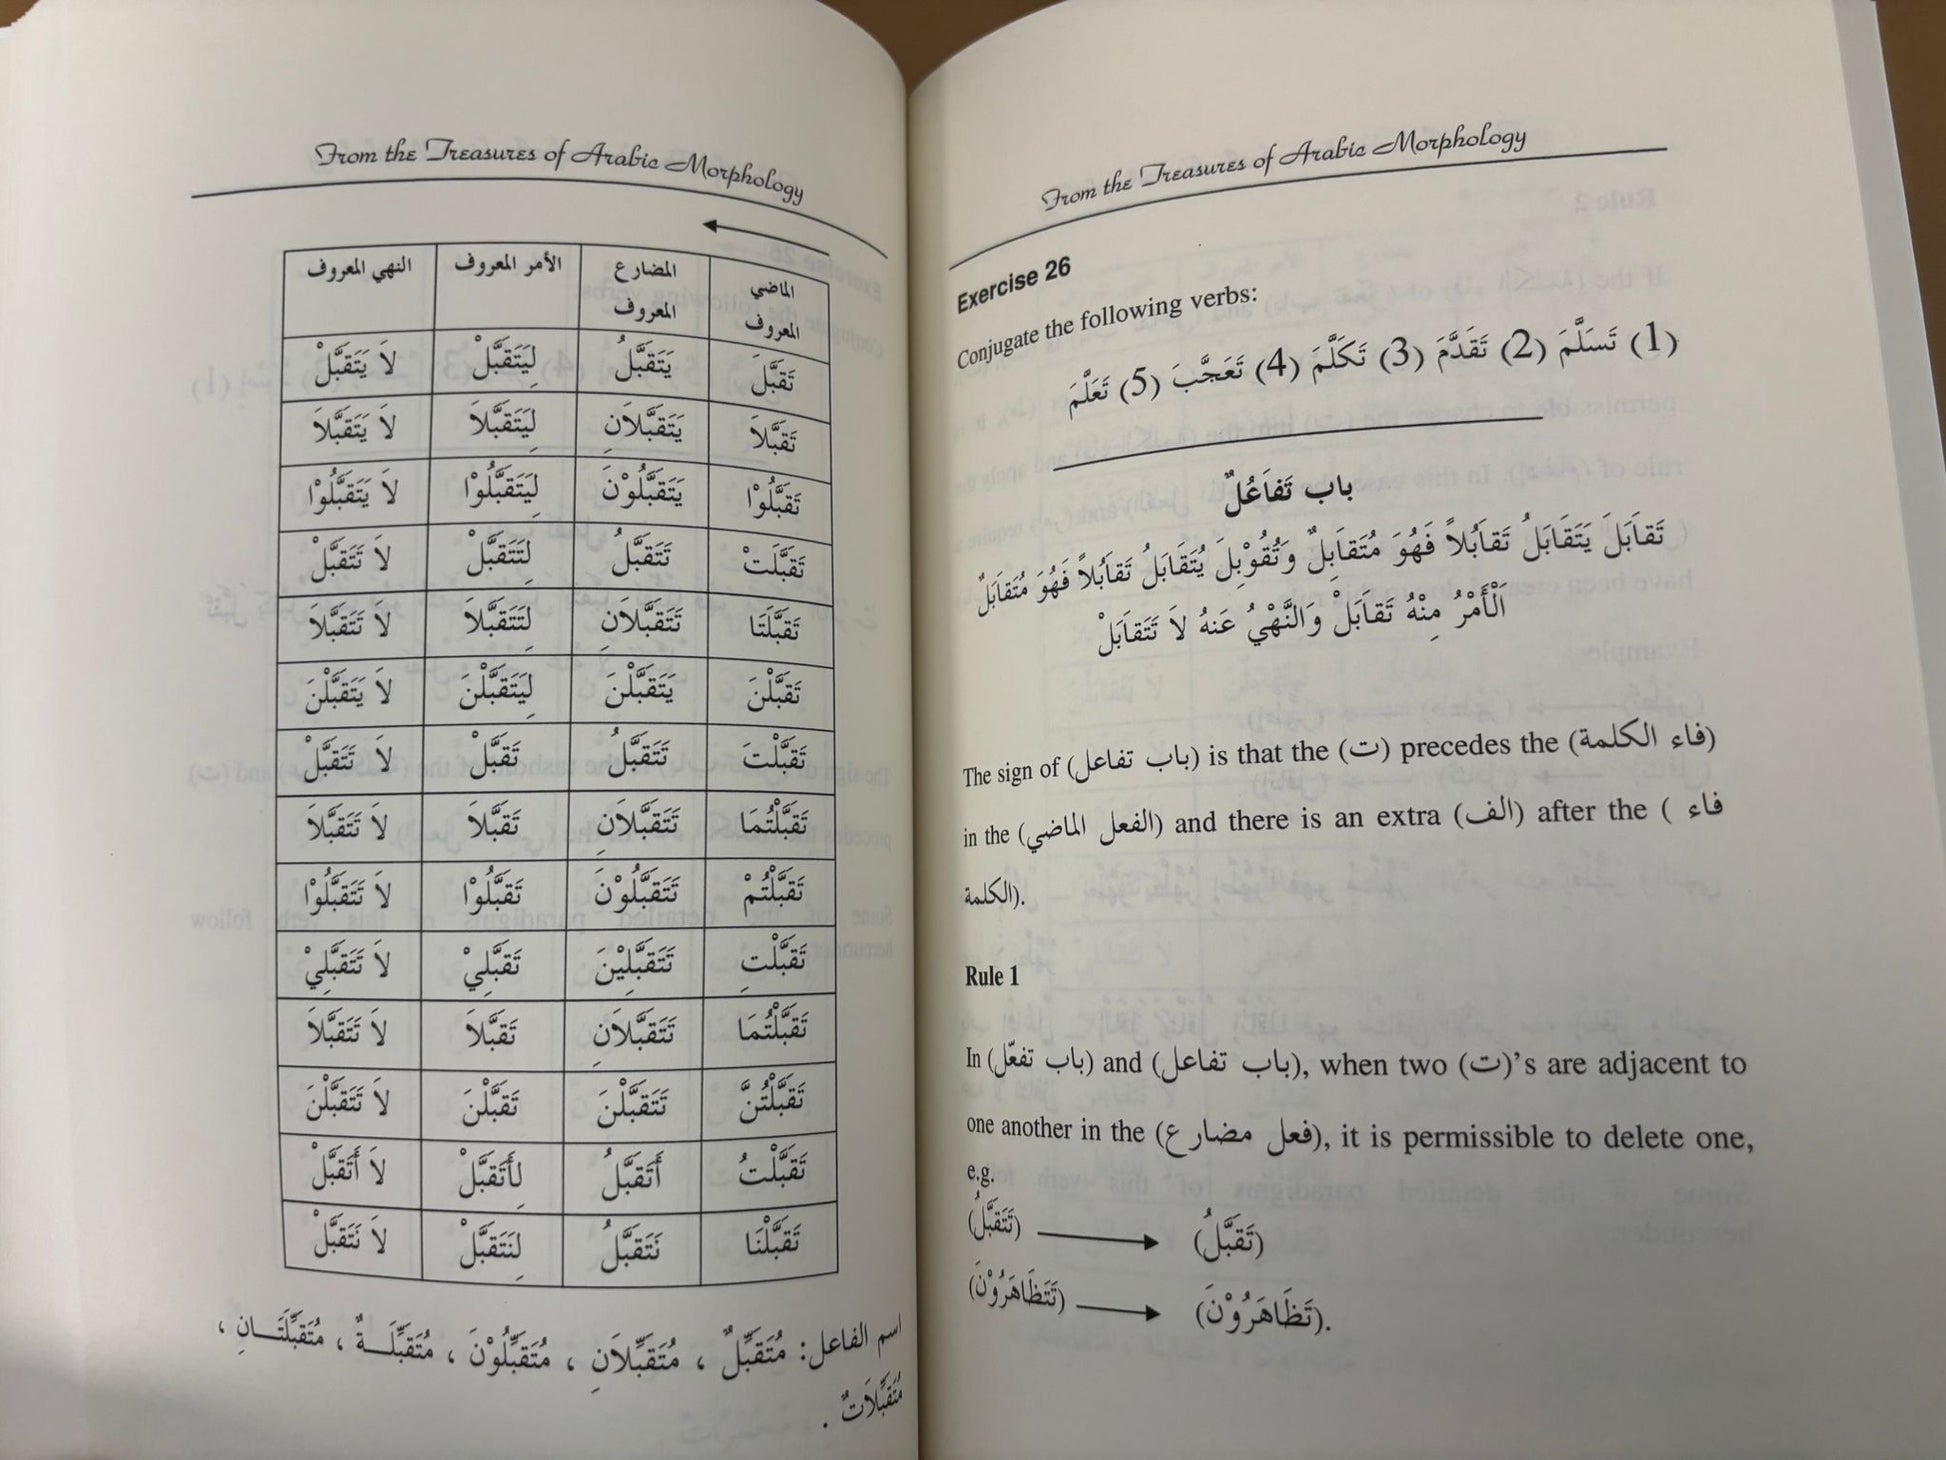 From the Treasures of Arabic Morphology
الماضي المعروف | المضارع المعروف | الأمر المعروف | النهي المعروف
تَقَبَّلَ | يَتَقَبَّلُ | لِيَتَقَبَّلْ | لاَ يَتَقَبَّلْ
تَقَبَّلاَ | يَتَقَبَّلاَنِ | لِيَتَقَبَّلاَ | لاَ يَتَقَبَّلاَ
تَقَبَّلُوْا | يَتَقَبَّلُوْنَ | لِيَتَقَبَّلُوْا | لاَ يَتَقَبَّلُوْا
تَقَبَّلَتْ | تَتَقَبَّلُ | لِتَتَقَبَّلْ | لاَ تَتَقَبَّلْ
تَقَبَّلَتَا | تَتَقَبَّلاَنِ | لِتَتَقَبَّلاَ | لاَ تَتَقَبَّلاَ
تَقَبَّلْنَ | يَتَقَبَّلْنَ | لِيَتَقَبَّلْنَ | لاَ يَتَقَبَّلْنَ
تَقَبَّلْتَ | تَتَقَبَّلُ | تَقَبَّلْ | لاَ تَتَقَبَّلْ
تَقَبَّلْتُمَا | تَتَقَبَّلاَنِ | تَقَبَّلاَ | لاَ تَتَقَبَّلاَ
تَقَبَّلْتُمْ | تَتَقَبَّلُوْنَ | تَقَبَّلُوْا | لاَ تَتَقَبَّلُوْا
تَقَبَّلْتِ | تَتَقَبَّلِيْنَ | تَقَبَّلِيْ | لاَ تَتَقَبَّلِيْ
تَقَبَّلْتُمَا | تَتَقَبَّلاَنِ | تَقَبَّلاَ | لاَ تَتَقَبَّلاَ
تَقَبَّلْتُنَّ | تَتَقَبَّلْنَ | تَقَبَّلْنَ | لاَ تَتَقَبَّلْنَ
تَقَبَّلْتُ | أَتَقَبَّلُ | لِأَتَقَبَّلْ | لاَ أَتَقَبَّلْ
تَقَبَّلْنَا | نَتَقَبَّلُ | لِنَتَقَبَّلْ | لاَ نَتَقَبَّلْ
اسم الفاعل: مُتَقَبِّلٌ ، مُتَقَبِّلاَنِ ، مُتَقَبِّلُوْنَ ، مُتَقَبِّلَــةٌ ، مُتَقَبِّلَتَــانِ ،
مُتَقَبِّلاَتٌ .
From the Treasures of Arabic Morphology
Exercise 26
Conjugate the following verbs:
(1) تَسَلَّمَ (2) تَقَدَّمَ (3) تَكَلَّمَ (4) تَعَجَّبَ (5) تَعَلَّمَ
باب تَفَاعُلٌ
تَقَابَلَ يَتَقَابَلُ تَقَابُلاً فَهُوَ مُتَقَابِلٌ وَتُقُوْبِلَ يُتَقَابَلُ تَقَابُلاً فَهُوَ مُتَقَابَلٌ
اَلْأَمْرُ مِنْهُ تَقَابَلْ وَالنَّهْيُ عَنهُ لاَ تَتَقَابَلْ
The sign of (باب تفاعل) is that the (ت) precedes the (فاء الكلمة)
in the (الفعل الماضي) and there is an extra (الف) after the ( فاء
الكلمة).
Rule 1
In (باب تفعّل) and (باب تفاعل), when two (ت)'s are adjacent to
one another in the (فعل مضارع), it is permissible to delete one,
e.g.
(تَتَقَبَّلُ) → (تَقَبَّلُ)
(تَتَظَاهَرُوْنَ) → (تَظَاهَرُوْنَ).